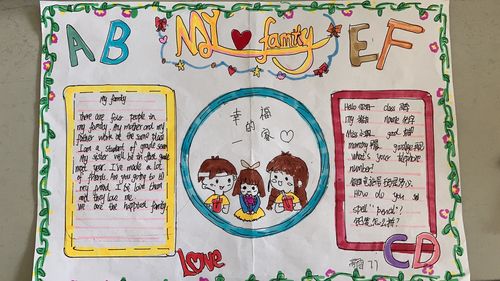 A B
My family
E F
My family
There are four people in
my family. My mother and my
father work at the same place
I am a student of grade seven
My sister will be in the grade
next year. I've made a lot
of friends. Are you going to be
my friend. I love them
and they love me.
We are the happiest family.
幸福
的
一家
Hello 你好 class 班级
my 我的 name 名字
Miss 小姐 good
what's your telephone
number?
你的电话号码是多少
How do you
spell "pencil"?
怎么拼?
C D
Love